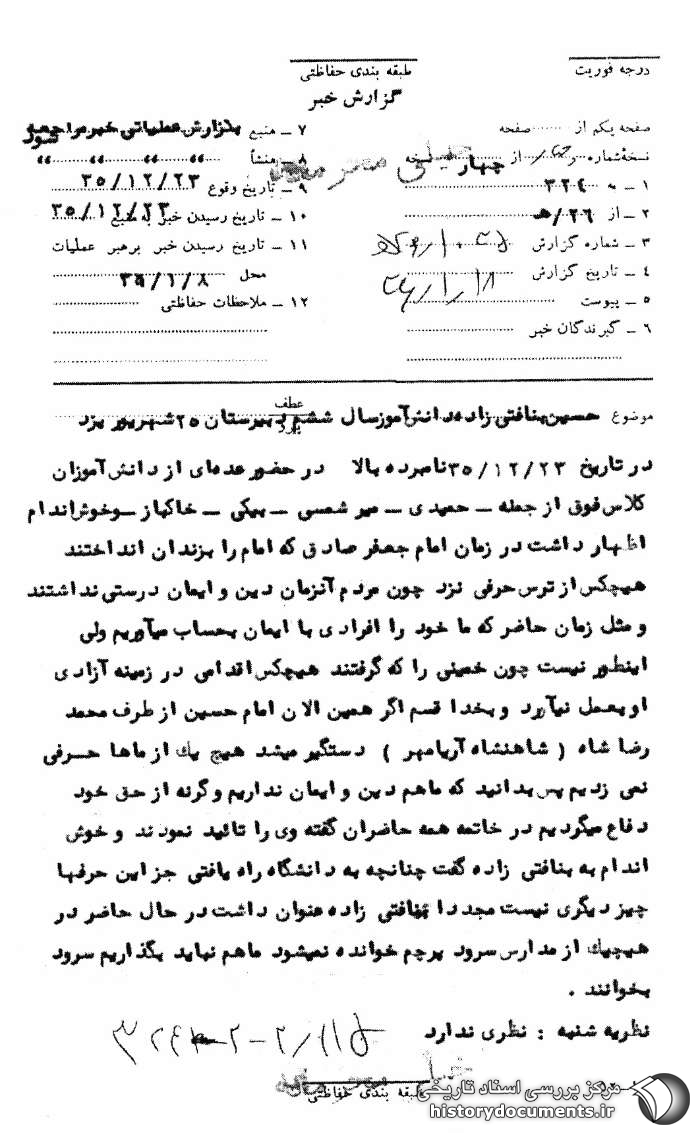 درجه فوریت
طبقه بندی حفاظتی
گزارش خبر
صفحه یکم از ...... صفحه
نسخهٔ شماره ...... از چهار نسخه
۱ ـ به ۳۲۴
۲ ـ از ۲۶/هـ
۳ ـ شماره گزارش
۴ ـ تاریخ گزارش ۳۶/۱/۱۸
۵ ـ پیوست
۶ ـ گیرندگان خبر
۷ ـ منبع بگزارش عملیاتی خبر مراجعه شود
۸ ـ منشأ " " " "
۹ ـ تاریخ وقوع ۳۵/۱۲/۲۳
۱۰ ـ تاریخ رسیدن خبر به منبع ۳۵/۱۲/۲۳
۱۱ ـ تاریخ رسیدن خبر برهبر عملیات
محل ۳۶/۱/۸
۱۲ ـ ملاحظات حفاظتی
خیلی محرمانه
موضوع حسین بنافتی زاده دانش آموز سال ششم دبیرستان ۲۵ شهریور یزد
عطف
در تاریخ ۳۵/۱۲/۲۳ نامبرده بالا در حضور عده‌ای از دانش آموزان
کلاس فوق از جمله ـ حمیدی ـ میر شمسی ـ بیکی ـ خاکباز ـ وخوش اندام
اظهار داشت در زمان امام جعفر صادق که امام را بزندان انداختند
هیچکس از ترس حرفی نزد چون مردم آنزمان دین و ایمان درستی نداشتند
و مثل زمان حاضر که ما خود را افرادی با ایمان بحساب میآوریم ولی
اینطور نیست چون خمینی را که گرفتند هیچکس اقدامی در زمینه آزادی
او بعمل نیآورد و بخدا قسم اگر همین الان امام حسین از طرف محمد
رضا شاه ( شاهنشاه آریامهر ) دستگیر میشد هیچ یك از ماها حرفی
نمی زدیم پس بدانید که ماهم دین و ایمان نداریم وگرنه از حق خود
دفاع میکردیم در خاتمه همه حاضران گفته وی را تائید نمودند و خوش
اندام به بنافتی زاده گفت چنانچه به دانشگاه راه یافتی جز این حرفها
چیز دیگری نیست مجددا بنافتی زاده عنوان داشت در حال حاضر در
هیچیك از مدارس سرود پرچم خوانده نمیشود ماهم نباید بگذاریم سرود
بخوانند .
نظریه شنبه : نظری ندارد
خیلی محرمانه
طبقه بندی حفاظتی
مرکز بررسی اسناد تاریخی
historydocuments.ir